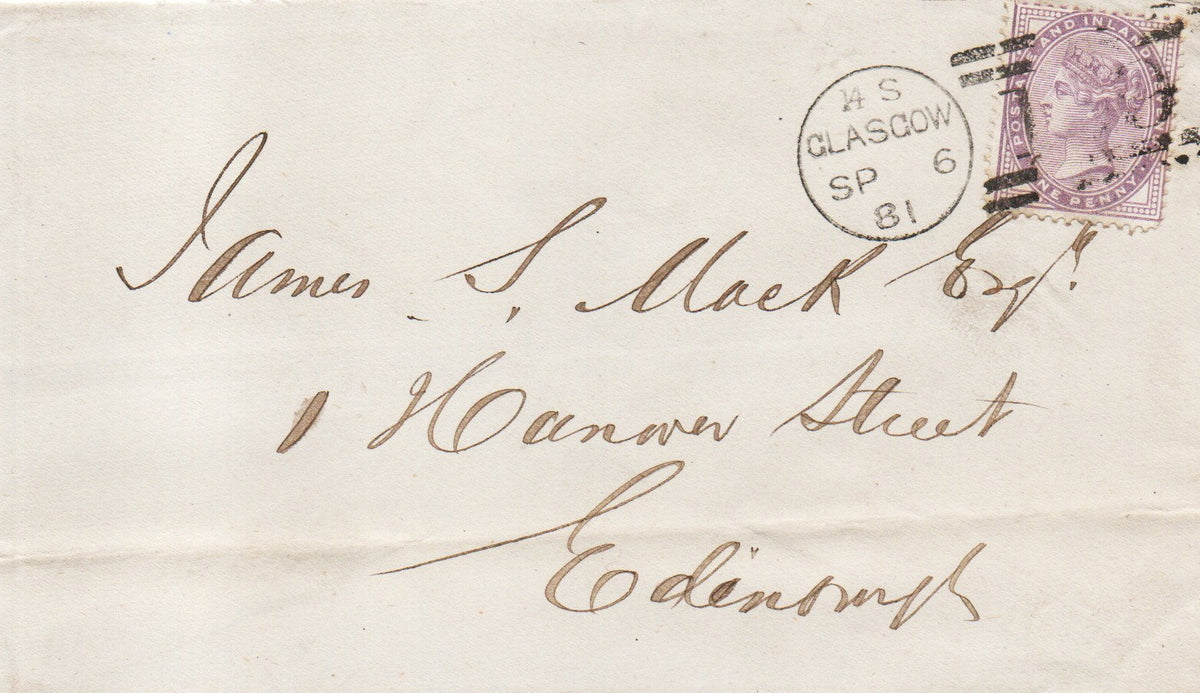 14 S
GLASGOW
SP 6
81
POSTAGE AND INLAND REVENUE
ONE PENNY
James S. Mack Esqr.
1 Hanover Street
Edinburgh